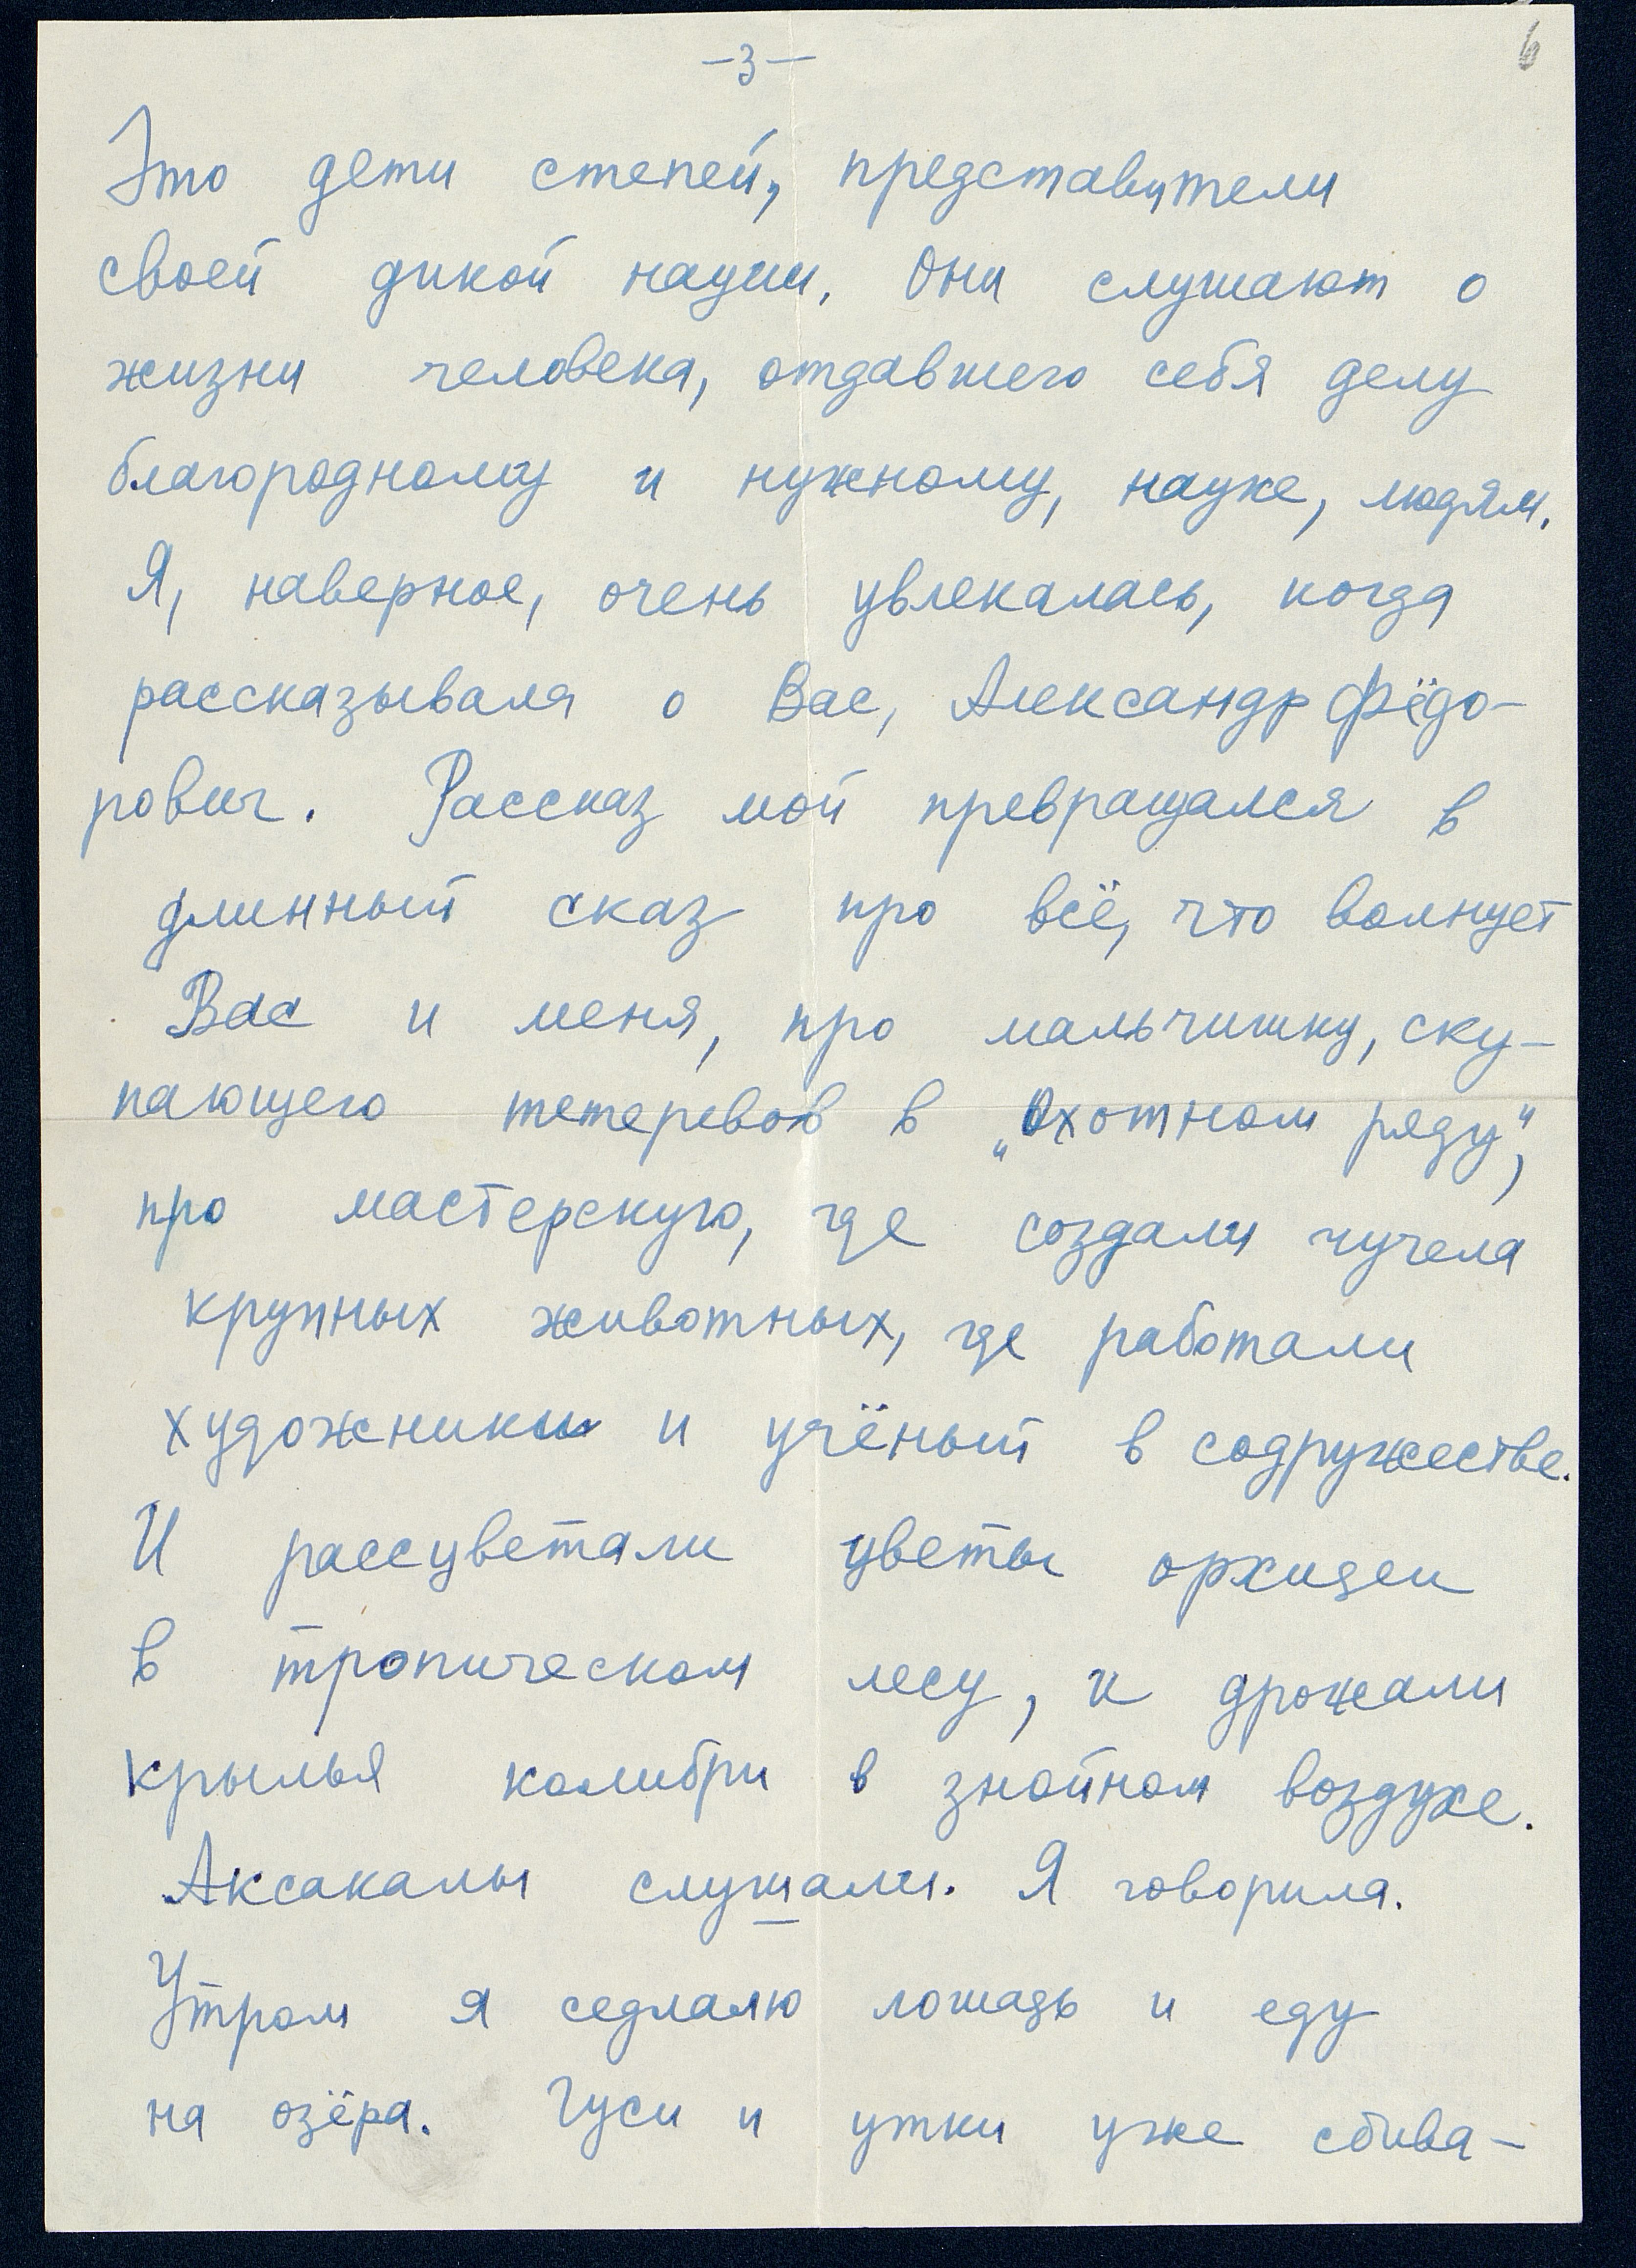 –3–
6
Это дети степей, представители
своей дикой нации. Они слушают о
жизни человека, отдавшего себя делу
благородному и нужному, науке, людям.
Я, наверное, очень увлекалась, когда
рассказывала о Вас, Александр Фёдо-
рович. Рассказ мой превращался в
длинный сказ про всё, что волнует
Вас и меня, про мальчишку, ску-
пающего тетеревов в „Охотном ряду“,
про мастерскую, где создали чучела
крупных животных, где работали
художники и учёный в содружестве.
И рассцветали цветы орхидеи
в тропическом лесу, и дрожали
крылья колибри в знойном воздухе.
Аксакалы слушали. Я говорила.
Утром я седлаю лошадь и еду
на озёра. Гуси и утки уже сбива-